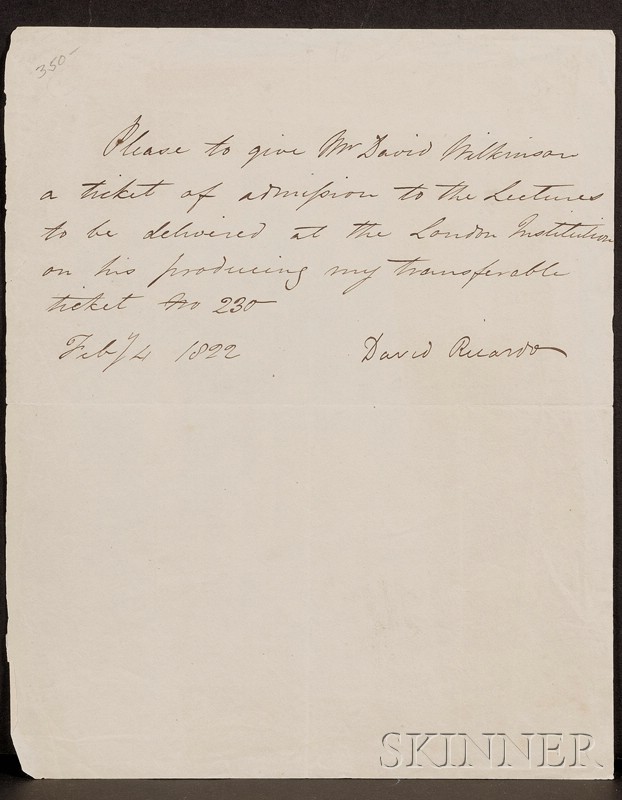 350
Please to give Mr David Wilkinson
a ticket of admission to the Lectures
to be delivered at the London Institution
on his producing my transferable
ticket No 230
Feby 4 1822 David Ricardo
SKINNER